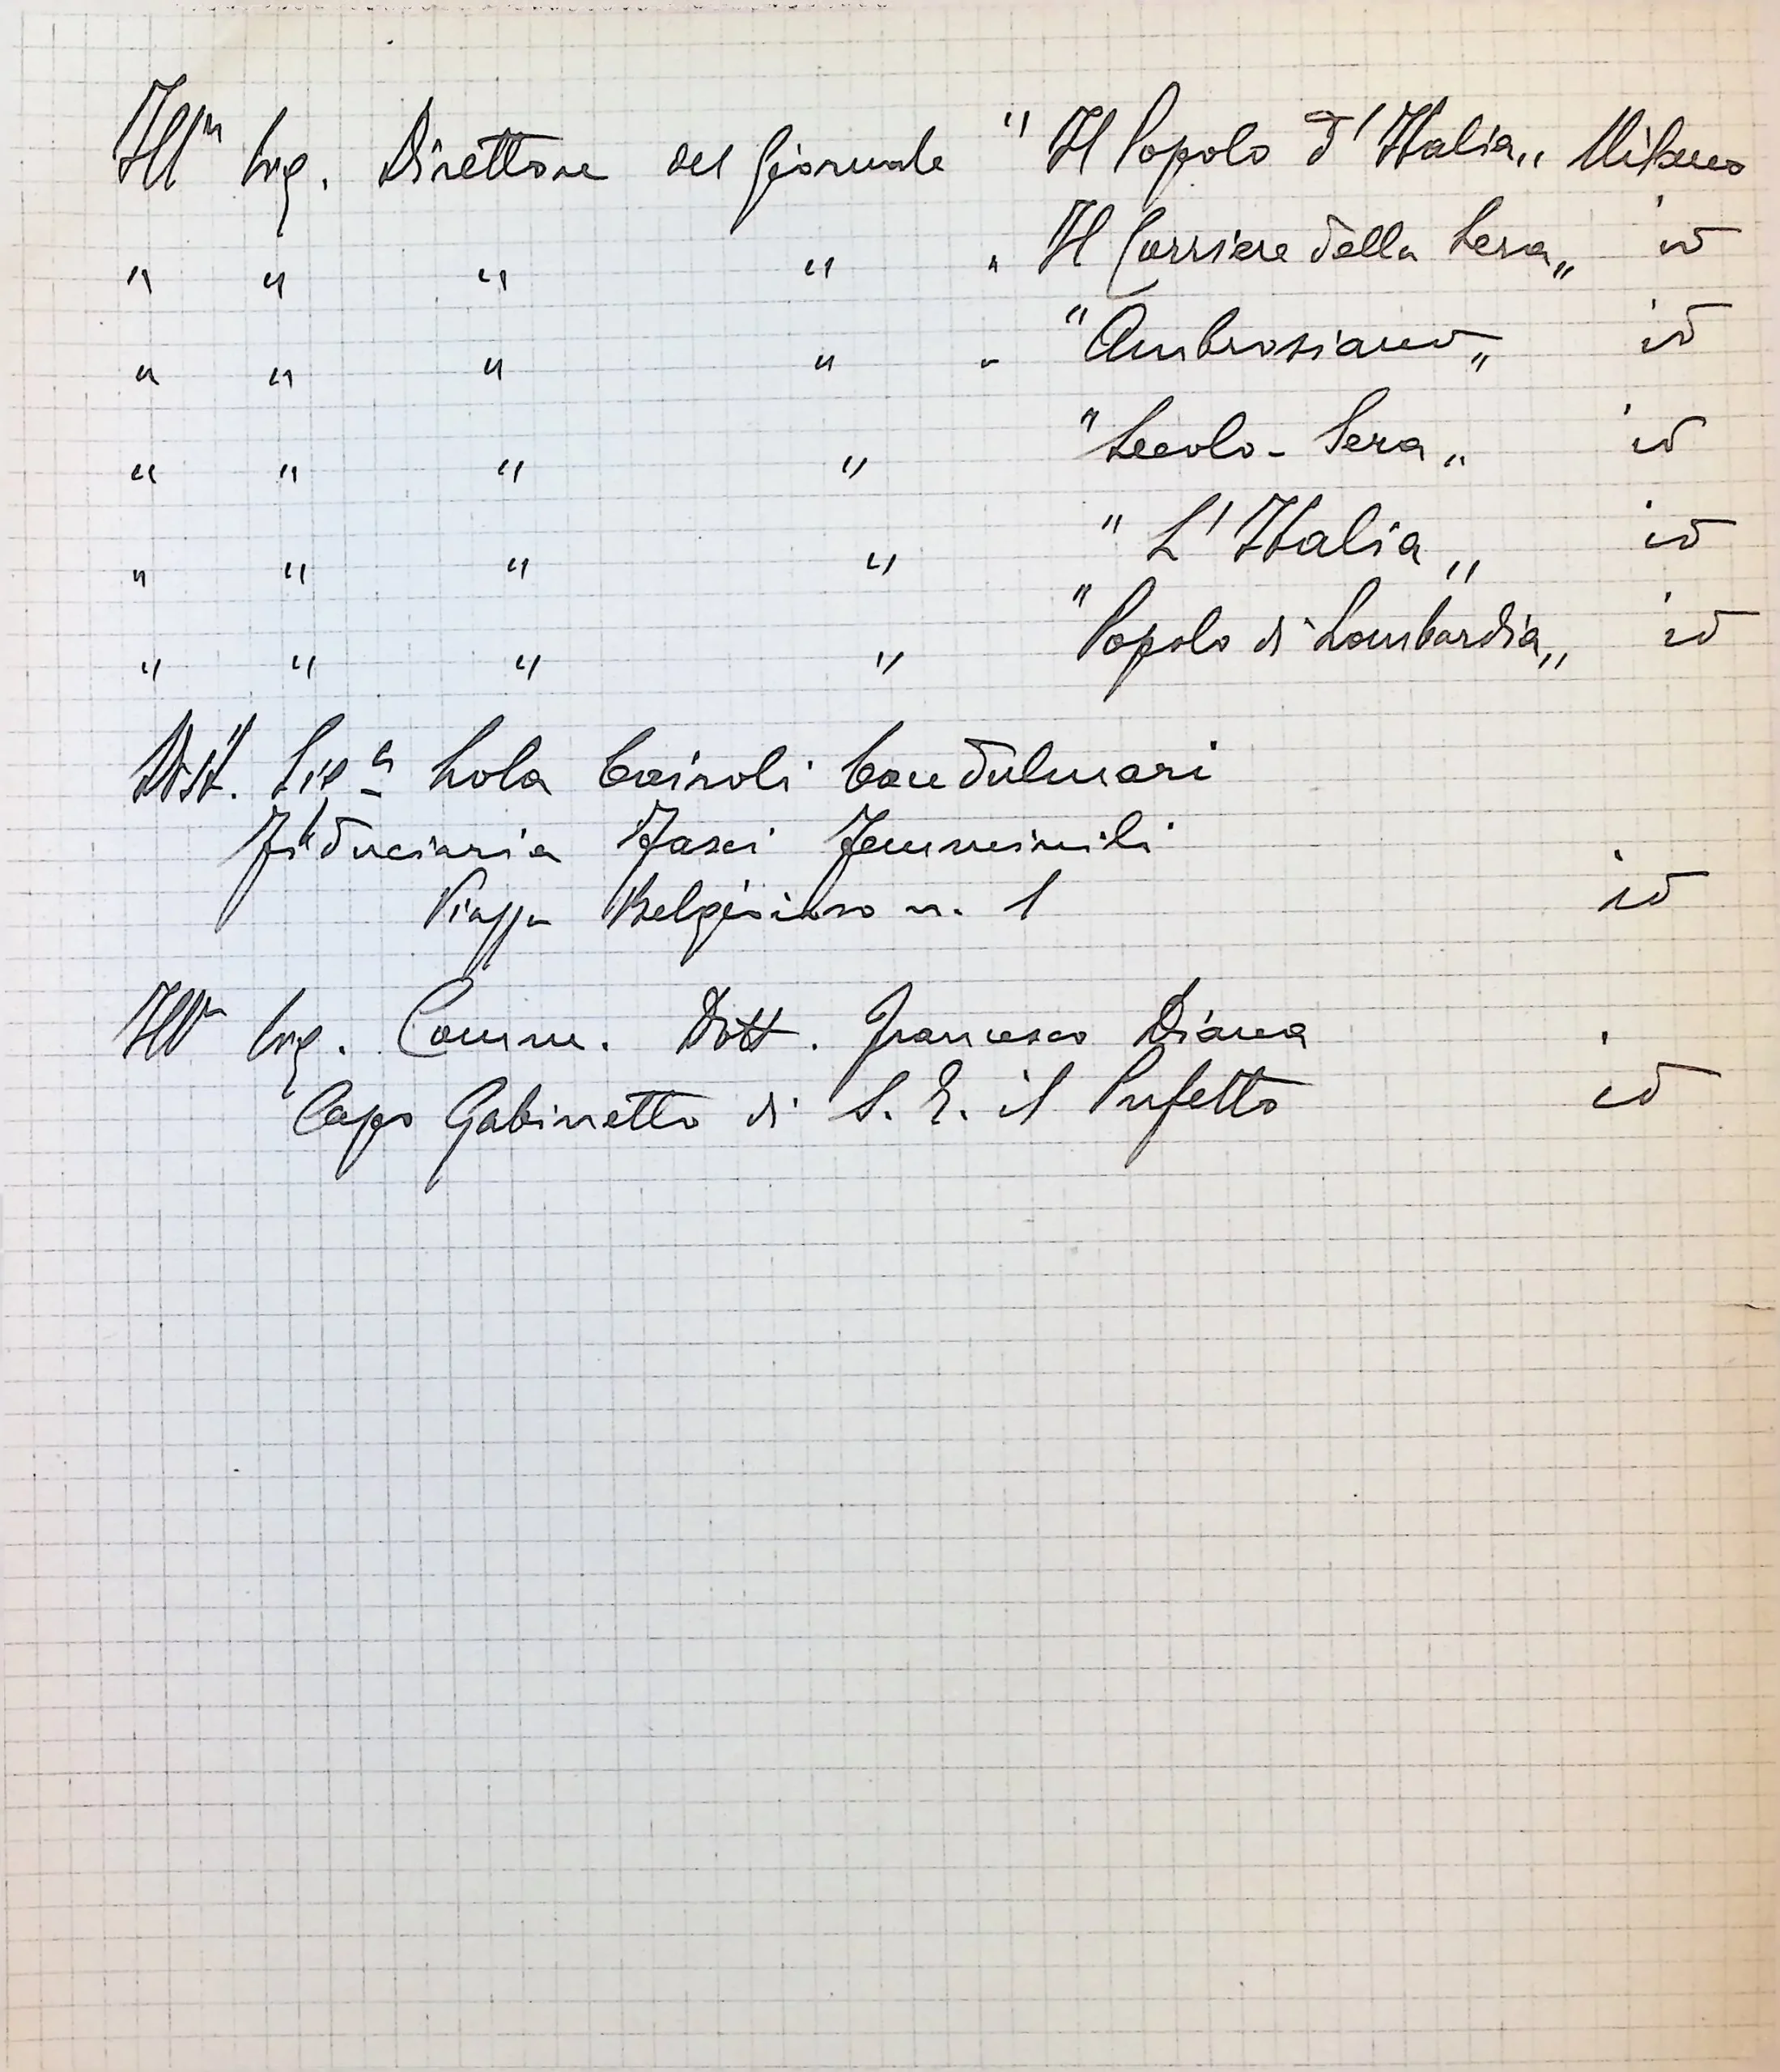 Illm Sig. Direttore del Giornale " Il Popolo d'Italia „ Milano
" " " " " Il Corriere della Sera „ id
" " " " " "Ambrosiano „ id
" " " " "Secolo - Sera „ id
" " " " " L'Italia „ id
" " " " "Popolo di Lombardia „ id
Dist. Sig.a Lola Cairoli Candulmari
Fiduciaria Fasci Femminili
Piazza Belgioioso n. 1 id
Illm Sig. Comm. Dott. Francesco Diana
Capo Gabinetto di S. E. il Prefetto id